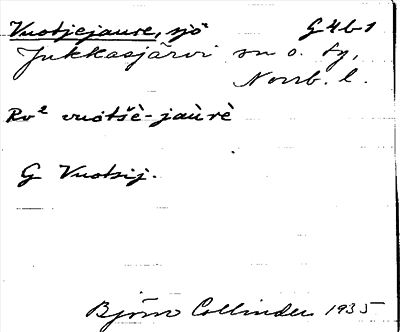 Vuotjejaure, sjö G4b1
Jukkasjärvi sn o. tg,
Norrb. l.
Rv² vuotšè-jaùrè
G Vuotsij.
Björn Collinder 1935